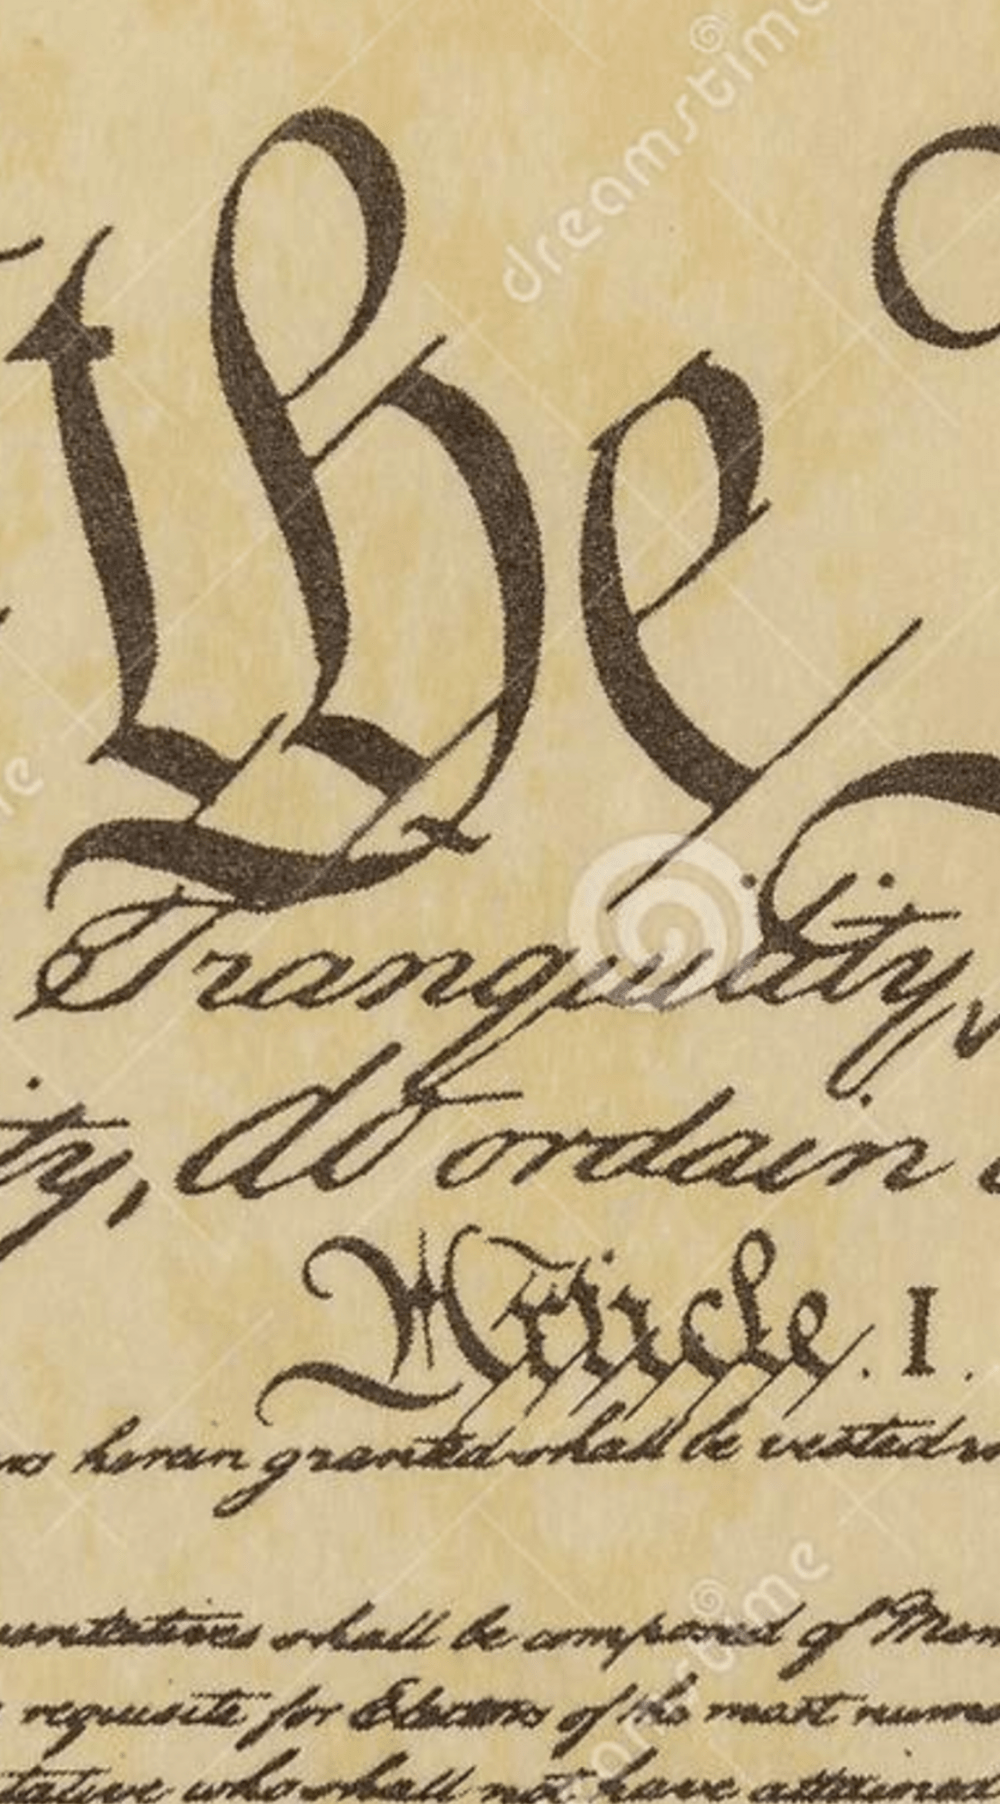 dreamstime
the
Tranquility,
ity, do ordain
Article. I.
herein granted shall be vested
shall be composed of Mem
requisite for Electors of the most nume
tative who shall not have attained